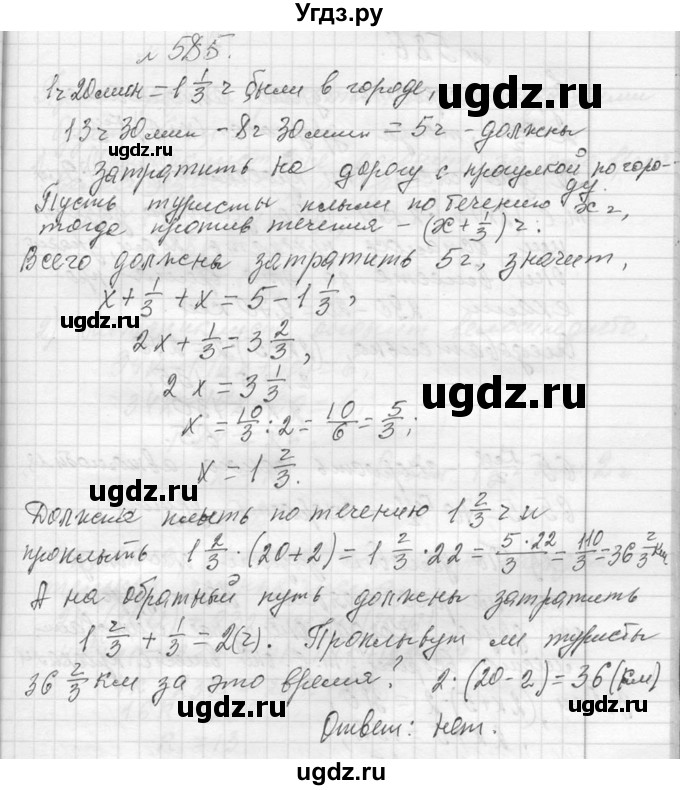 Угдз.ру
№ 585.
1ч 20мин = 1 1/3 ч были в городе,
13ч 30мин - 8ч 30мин = 5ч - должны
затратить на дорогу с прогулкой по горо-
ду.
Пусть туристы плыли по течению x ч,
тогда против течения - (x + 1/3) ч.
Всего должны затратить 5ч, значит,
x + 1/3 + x = 5 - 1 1/3,
2x + 1/3 = 3 2/3,
2x = 3 1/3
x = 10/3 : 2 = 10/6 = 5/3;
x = 1 2/3.
Должны плыть по течению 1 2/3 ч и
проплыть 1 2/3 · (20+2) = 1 2/3 · 22 = 5·22/3 = 110/3 = 36 2/3 км.
А на обратный путь должны затратить
1 2/3 + 1/3 = 2(ч). Проплывут ли туристы
36 2/3 км за это время? 2·(20-2) = 36 (км)
Ответ: нет.
ugdz.ru
ugdz.ru
ugdz.ru
ugdz.ru
ugdz.ru
ugdz.ru
ugdz.ru
ugdz.ru
ugdz.ru